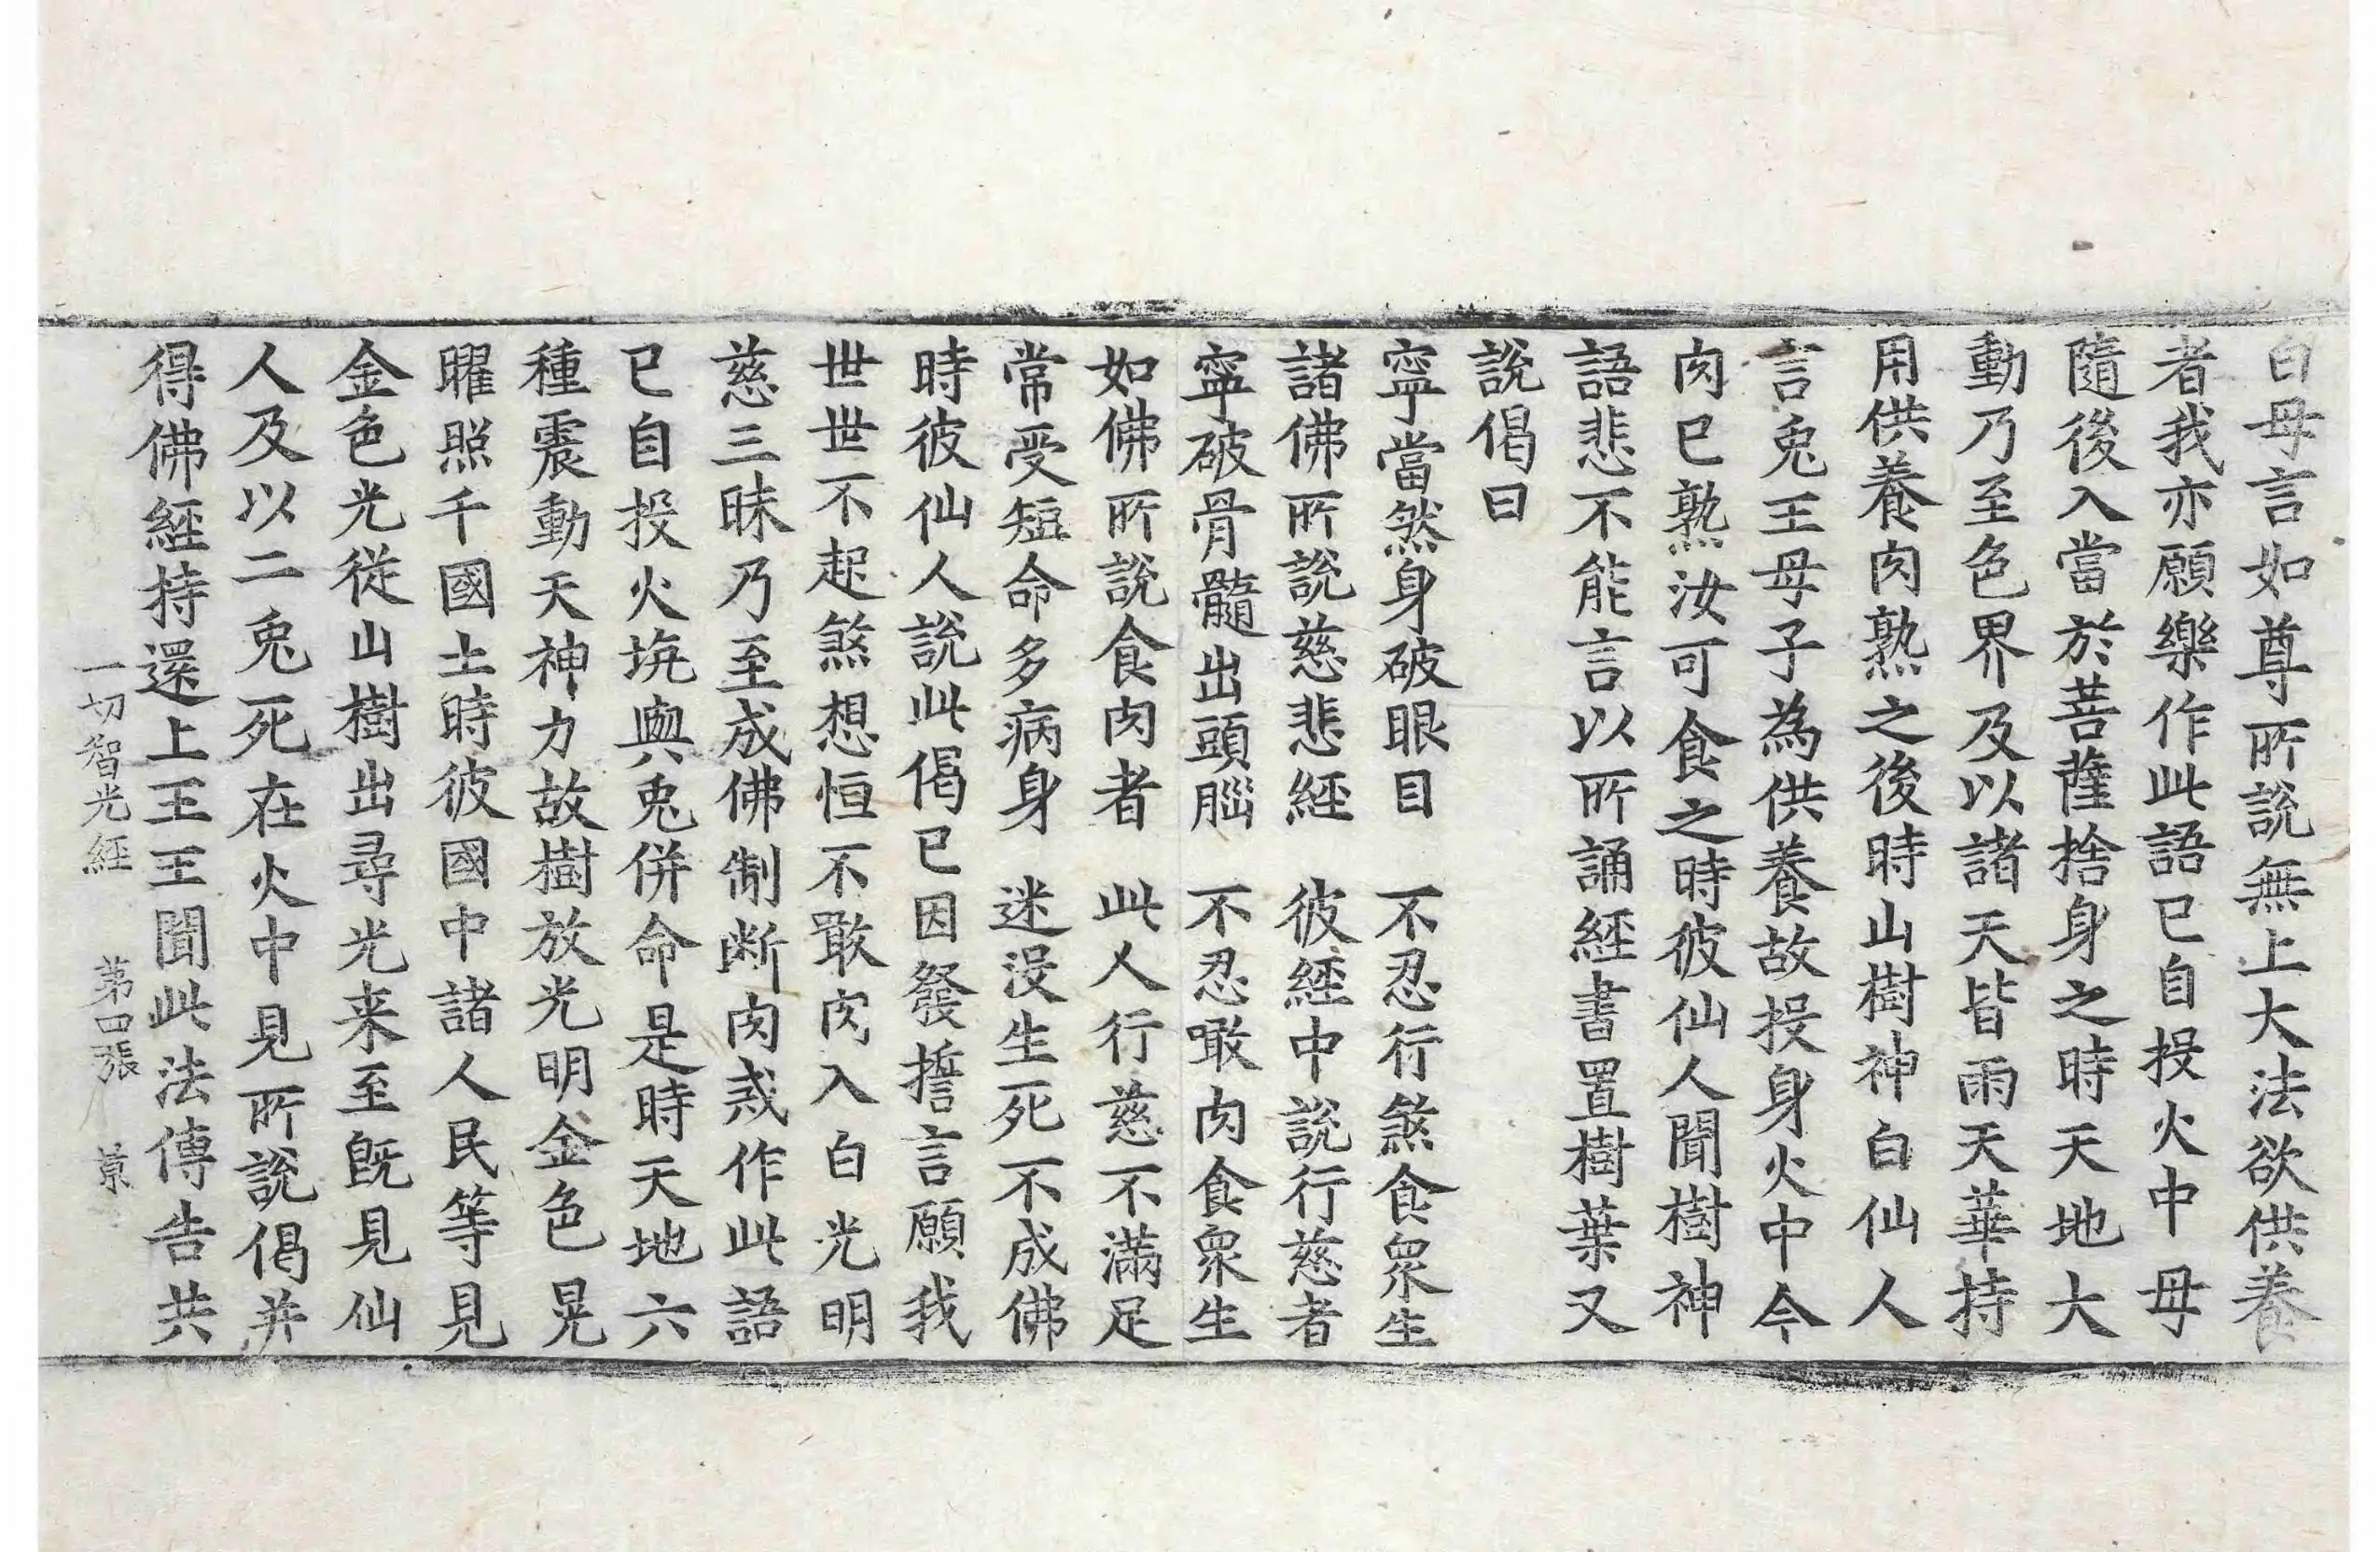 白母言如尊所說無上大法欲供養
者我亦願樂作此語已自投火中母
隨後入當於菩薩捨身之時天地大
動乃至色界及以諸天皆雨天華持
用供養肉熟之後時山樹神白仙人
言兎王母子為供養故投身火中今
肉已熟汝可食之時彼仙人聞樹神
語悲不能言以所誦經書置樹葉又
說偈曰
寧當然身破眼目　不忍行煞食衆生
諸佛所說慈悲經　彼經中說行慈者
寧破骨髓出頭腦　不忍噉肉食衆生
如佛所說食肉者　此人行慈不滿足
常受短命多病身　迷没生死不成佛
時彼仙人說此偈已因發誓言願我
世世不起煞想恒不敢肉入白光明
慈三昧乃至成佛制断肉戒作此語
已自投火坑與兎併命是時天地六
種震動天神力故樹放光明金色晃
曜照千國土時彼國中諸人民等見
金色光從山樹出尋光来至旣見仙
人及以二兎死在火中見所說偈并
得佛經持還上王王聞此法傳告共
一切智光經　第四張　景